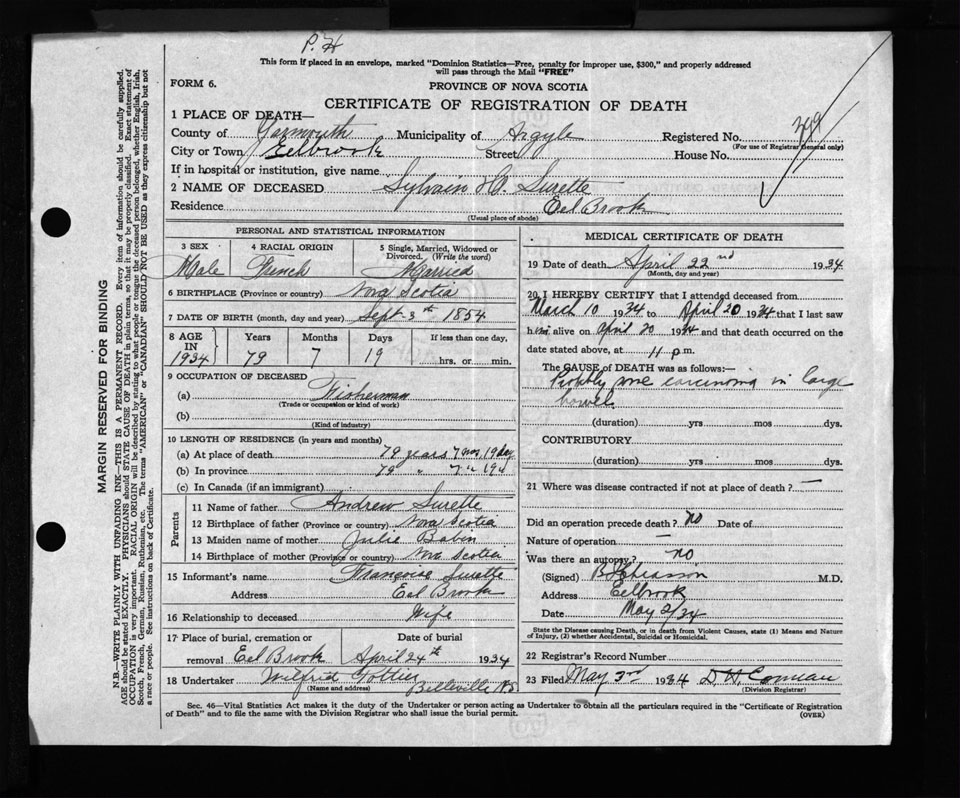 P. H
This form if placed in an envelope, marked "Dominion Statistics—Free, penalty for improper use, $300," and properly addressed
will pass through the Mail "FREE"
FORM 6.
PROVINCE OF NOVA SCOTIA
CERTIFICATE OF REGISTRATION OF DEATH
1 PLACE OF DEATH—
County of Yarmouth Municipality of Argyle Registered No.
(For use of Registrar General only)
City or Town Eelbrook Street House No.
If in hospital or institution, give name
2 NAME OF DECEASED Sylvain Surette
Residence Eel Brook
(Usual place of abode)
PERSONAL AND STATISTICAL INFORMATION
3 SEX 4 RACIAL ORIGIN 5 Single, Married, Widowed or Divorced. (Write the word)
Male French Married
6 BIRTHPLACE (Province or country) Nova Scotia
7 DATE OF BIRTH (month, day and year) Sept 3th 1854
8 AGE IN 1934 Years Months Days If less than one day,
79 7 19 hrs. or min.
9 OCCUPATION OF DECEASED
(a) Fisherman
(Trade or occupation or kind of work)
(b)
(Kind of industry)
10 LENGTH OF RESIDENCE (in years and months)
(a) At place of death 79 years 7 mos 19 day
(b) In province 79 " 7 " 19 "
(c) In Canada (if an immigrant)
Parents
11 Name of father Andrew Surette
12 Birthplace of father (Province or country) Nova Scotia
13 Maiden name of mother Julie Babin
14 Birthplace of mother (Province or country) Nova Scotia
15 Informant's name Françoise Surette
Address Eel Brook
16 Relationship to deceased Wife
17 Place of burial, cremation or Date of burial
removal Eel Brook April 24th 1934
18 Undertaker Wilfred Pottier Belleville NS
(Name and address)
MEDICAL CERTIFICATE OF DEATH
19 Date of death April 22nd 1934
(Month, day and year)
20 I HEREBY CERTIFY that I attended deceased from
March 10 1934 to April 20 1934 that I last saw
him alive on April 20 1934 and that death occurred on the
date stated above, at 11 p m.
The CAUSE of DEATH was as follows:—
Probably some carcinoma in large
bowel
(duration) yrs mos dys.
CONTRIBUTORY
(duration) yrs mos dys.
21 Where was disease contracted if not at place of death? —
Did an operation precede death? no Date of
Nature of operation —
Was there an autopsy? no
(Signed) M.D.
Address Eelbrook
Date May 2/34
State the Disease causing Death, or in death from Violent Causes, state (1) Means and Nature
of Injury, (2) whether Accidental, Suicidal or Homicidal.
22 Registrar's Record Number
23 Filed May 3rd 1934 D H Comeau
(Division Registrar)
Sec. 46—Vital Statistics Act makes it the duty of the Undertaker or person acting as Undertaker to obtain all the particulars required in the "Certificate of Registration
of Death" and to file the same with the Division Registrar who shall issue the burial permit. (OVER)
MARGIN RESERVED FOR BINDING
N.B.—WRITE PLAINLY WITH UNFADING INK—THIS IS A PERMANENT RECORD. Every item of information should be carefully supplied.
AGE should be stated EXACTLY. PHYSICIANS should STATE CAUSE OF DEATH in plain terms, so that it may be properly classified. Exact statement of
OCCUPATION is very important. RACIAL ORIGIN will be described by stating to what people or tongue the deceased person belonged, whether English, Irish,
Scotch, French, German, Russian, Ruthenian, etc. The terms "AMERICAN" or "CANADIAN" SHOULD NOT BE USED as they express citizenship but not
a race or people. See instructions on back of Certificate.